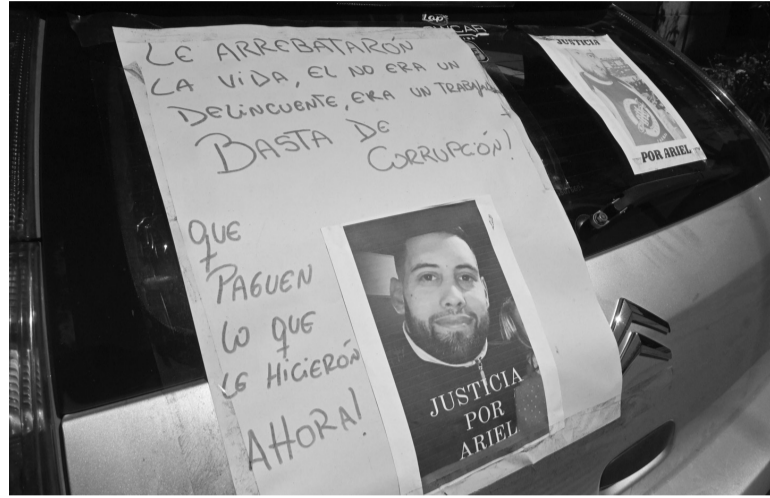 LE ARREBATARÓN
LA VIDA, EL NO ERA UN
DELINCUENTE, ERA UN TRABAJADOR
BASTA DE
CORRUPCIÓN!
QUE
PAGUEN
LO QUE
LE HICIERÓN
AHORA!
JUSTICIA
POR
ARIEL
JUSTICIA
POR ARIEL